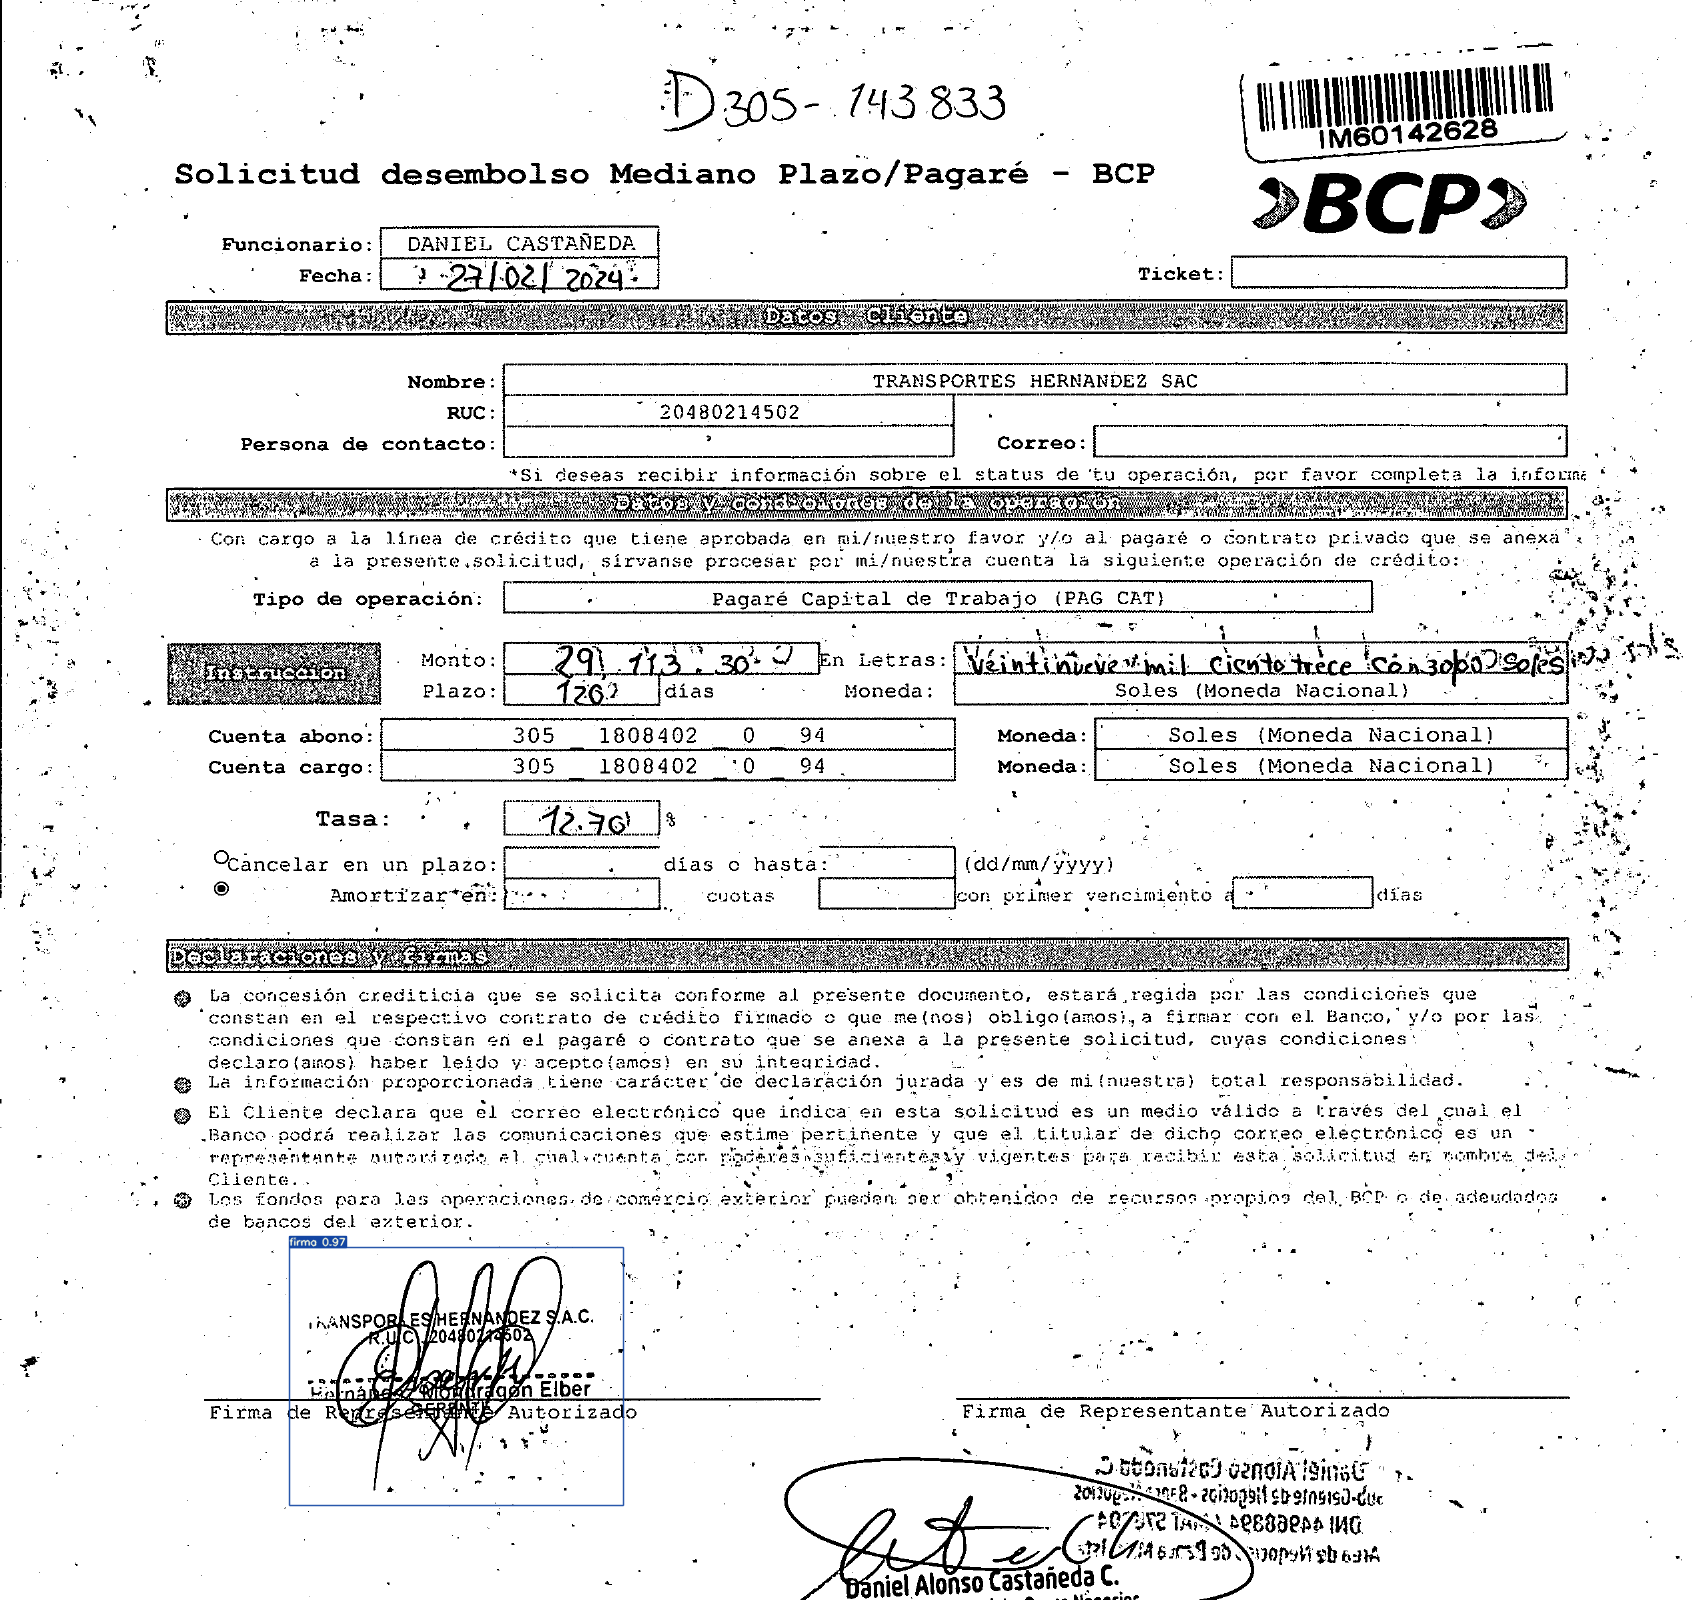 D305-143833
IM60142628
Solicitud desembolso Mediano Plazo/Pagaré - BCP
BCP
Funcionario: DANIEL CASTAÑEDA
Fecha: 27/02/2024
Ticket:
Datos Cliente
Nombre: TRANSPORTES HERNANDEZ SAC
RUC: 20480214502
Persona de contacto:
Correo:
*Si deseas recibir información sobre el status de tu operación, por favor completa la informa
Datos y condiciones de la operación
Con cargo a la línea de crédito que tiene aprobada en mi/nuestro favor y/o al pagaré o contrato privado que se anexa
a la presente solicitud, sírvanse procesar por mi/nuestra cuenta la siguiente operación de crédito:
Tipo de operación: Pagaré Capital de Trabajo (PAG CAT)
Instrucción
Monto: 29,113.30 En Letras: Veintinueve mil ciento trece con soles
Plazo: 120 días Moneda: Soles (Moneda Nacional)
Cuenta abono: 305 _ 1808402 _ 0 _ 94 Moneda: Soles (Moneda Nacional)
Cuenta cargo: 305 _ 1808402 _ 0 _ 94 Moneda: Soles (Moneda Nacional)
Tasa: 12.70 %
Cancelar en un plazo: días o hasta: (dd/mm/yyyy)
Amortizar en: cuotas con primer vencimiento a días
Declaraciones y firmas
La concesión crediticia que se solicita conforme al presente documento, estará regida por las condiciones que
constan en el respectivo contrato de crédito firmado o que me(nos) obligo(amos), a firmar con el Banco, y/o por las
condiciones que constan en el pagaré o contrato que se anexa a la presente solicitud, cuyas condiciones
declaro(amos) haber leido y acepto(amos) en su integridad.
La información proporcionada tiene carácter de declaración jurada y es de mi(nuestra) total responsabilidad.
El Cliente declara que el correo electrónico que indica en esta solicitud es un medio válido a través del cual el
Banco podrá realizar las comunicaciones que estime pertinente y que el titular de dicho correo electrónico es un
representante autorizado el cual cuenta con poderes suficientes y vigentes para recibir esta solicitud en nombre del
Cliente.
Los fondos para las operaciones de comercio exterior pueden ser obtenidos de recursos propios del BCP o de adeudados
de bancos del exterior.
firma 0.97
TRANSPORTES HERNANDEZ S.A.C.
R.U.C. 20480214502
Hernández Mondragón Elber
GERENTE
Firma de Representante Autorizado
Firma de Representante Autorizado
Daniel Alonso Castañeda C.
Sub-Gerente de Negocios -
DNI 44968894
Daniel Alonso Castañeda C.